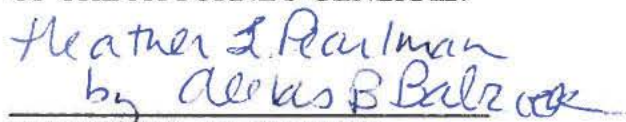 Heather L Pearlman
by Alexis B Babcock